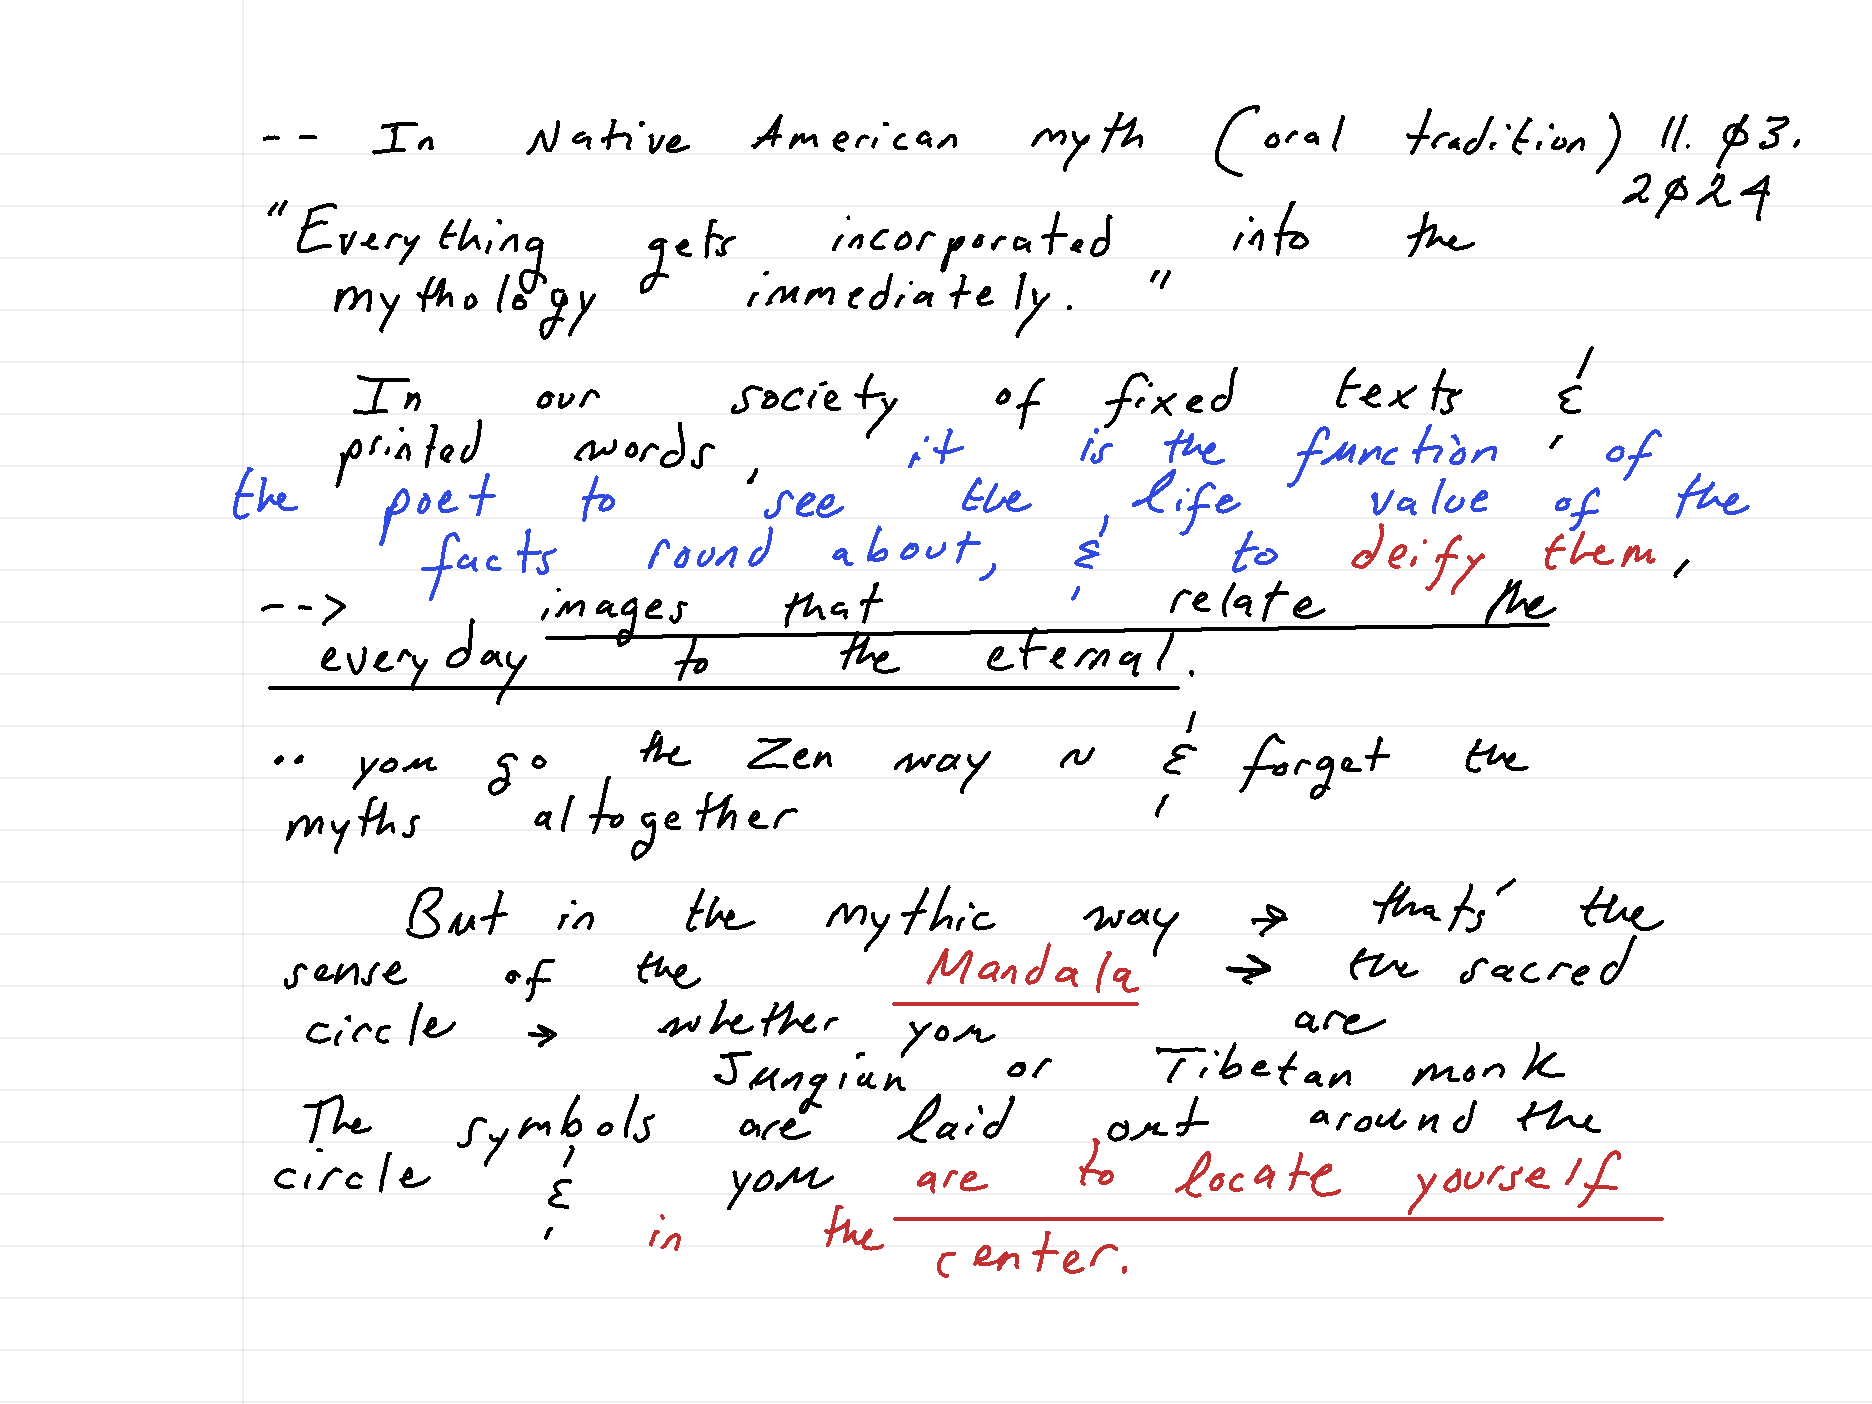 -- In Native American myth (oral tradition) 11. ø3.
2ø24
"Everything gets incorporated into the
mythology immediately."
In our society of fixed texts &
printed words, it is the function of
the poet to see the life value of the
facts round about, & to deify them,
--> images that relate the
everyday to the eternal.
.. you go the Zen way ~ & forget the
myths altogether
But in the mythic way → thats' the
sense of the Mandala → the sacred
circle → whether you are
Jungian or Tibetan monk
The symbols are laid out around the
circle & you are to locate yourself
in the center.